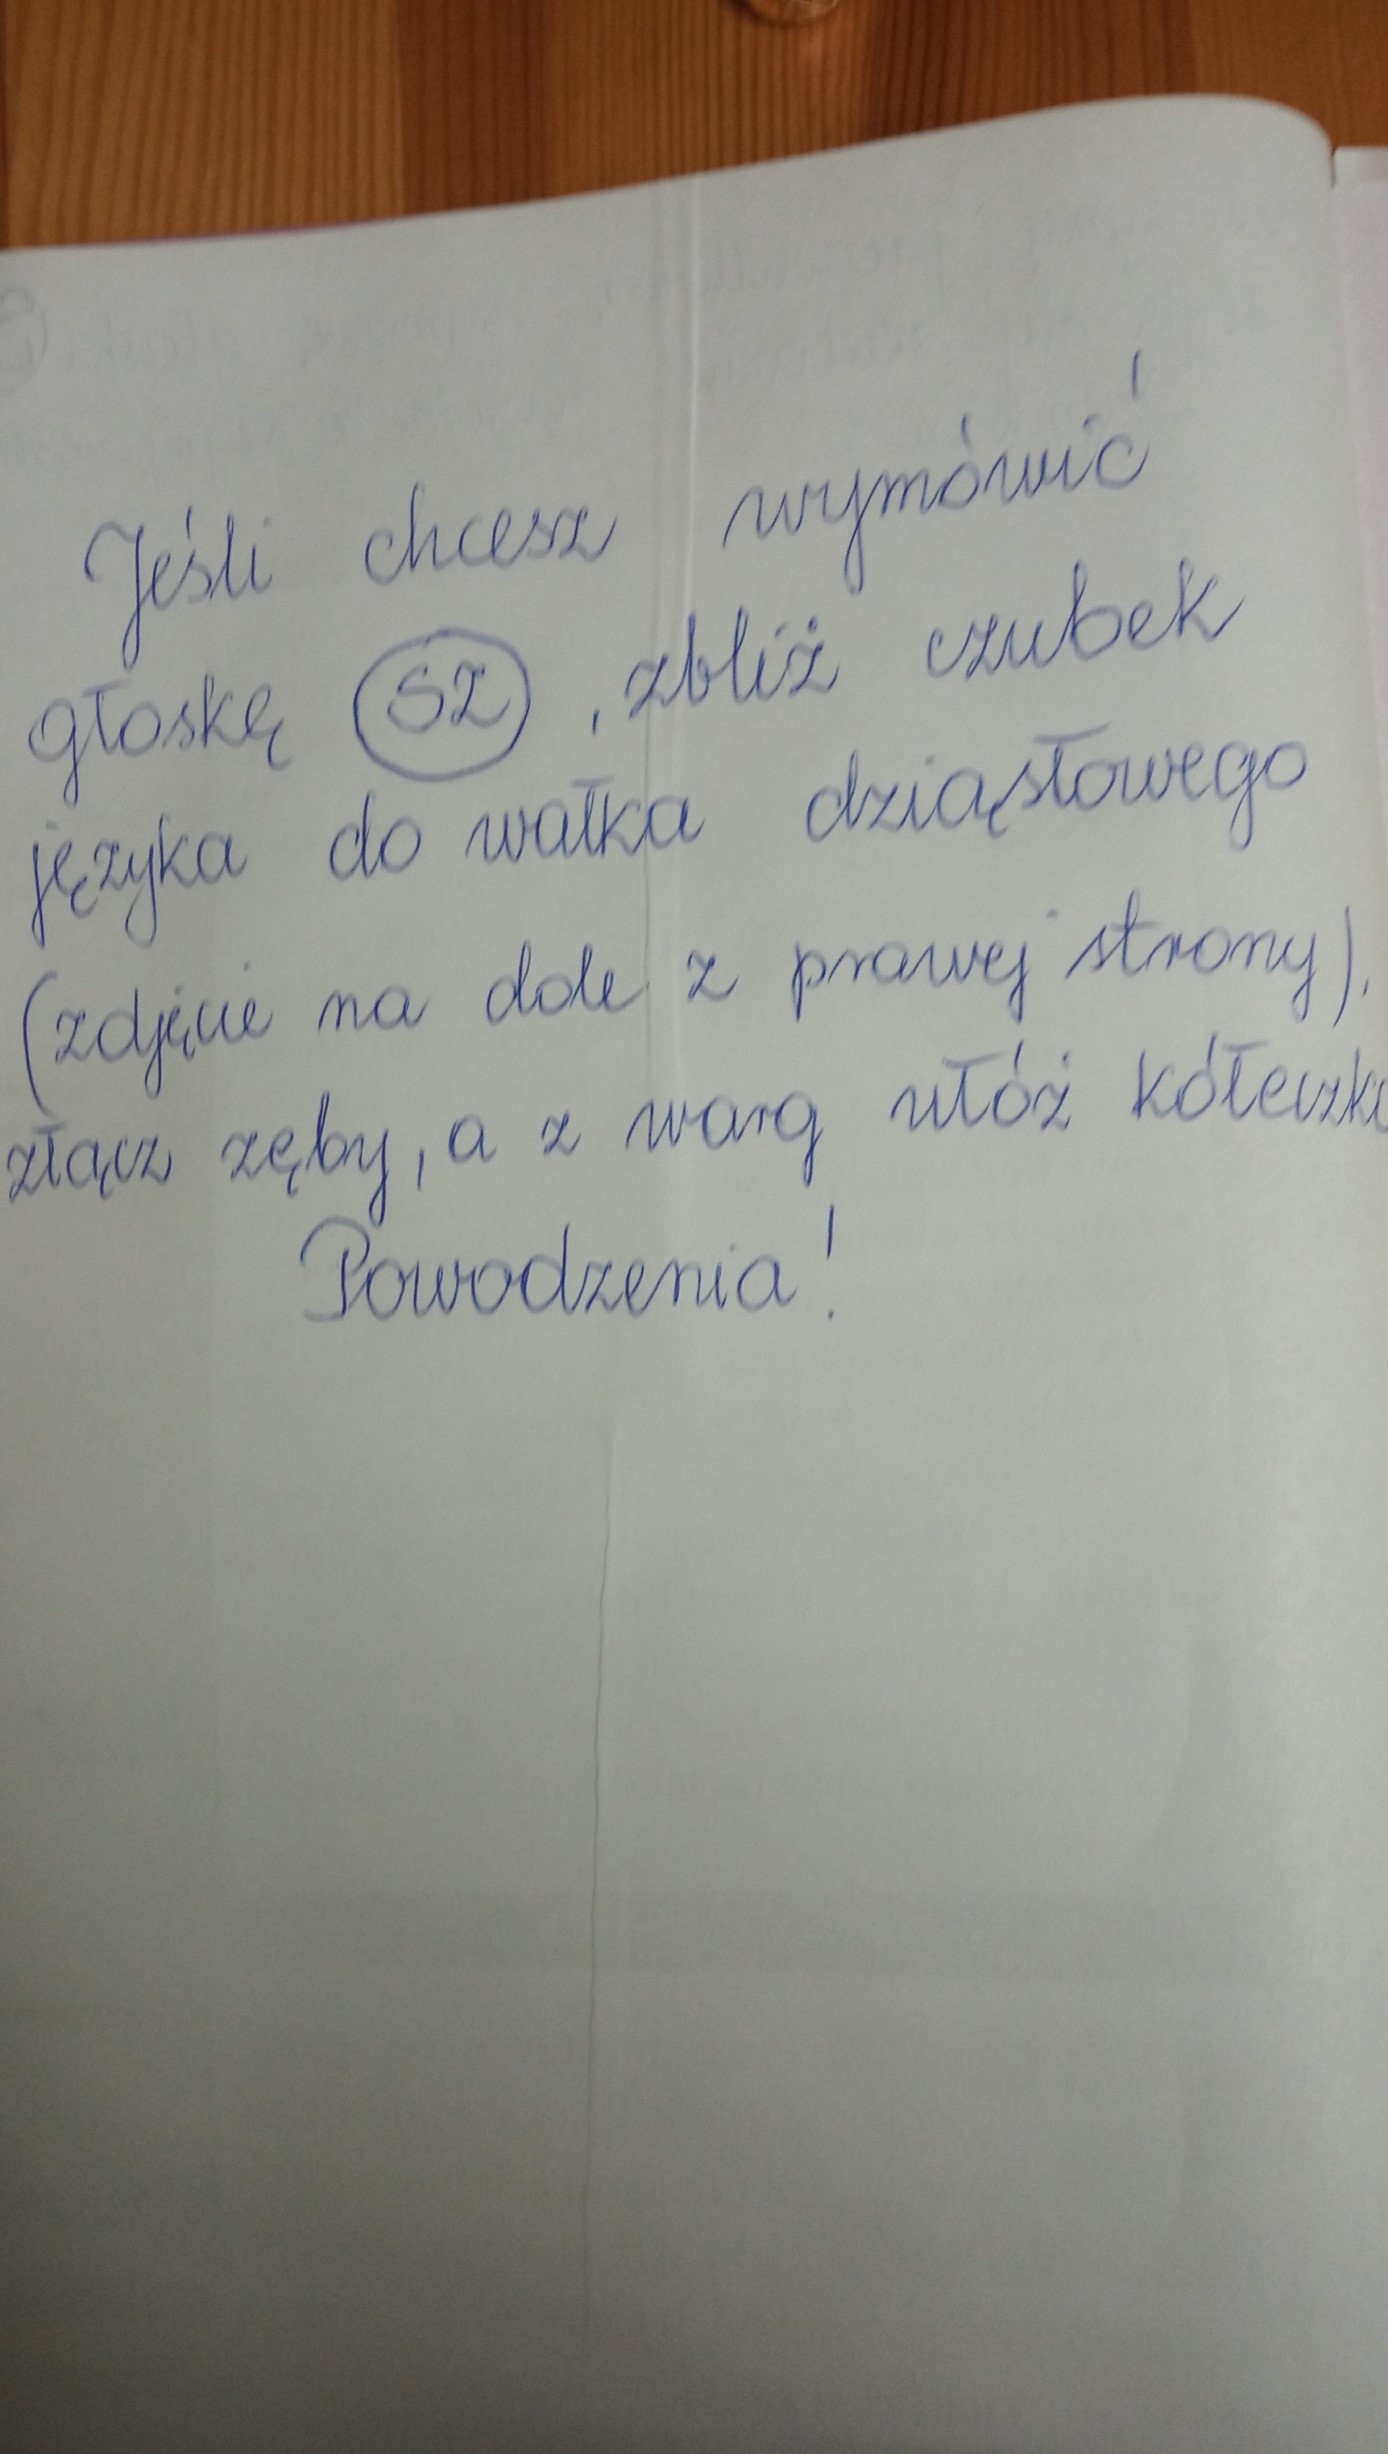 Jeśli chcesz wymówić
głoskę SZ, zbliż czubek
języka do wałka dziąsłowego
(zdjęcie na dole z prawej strony),
złącz zęby, a z warg ułóż kółeczko
Powodzenia!